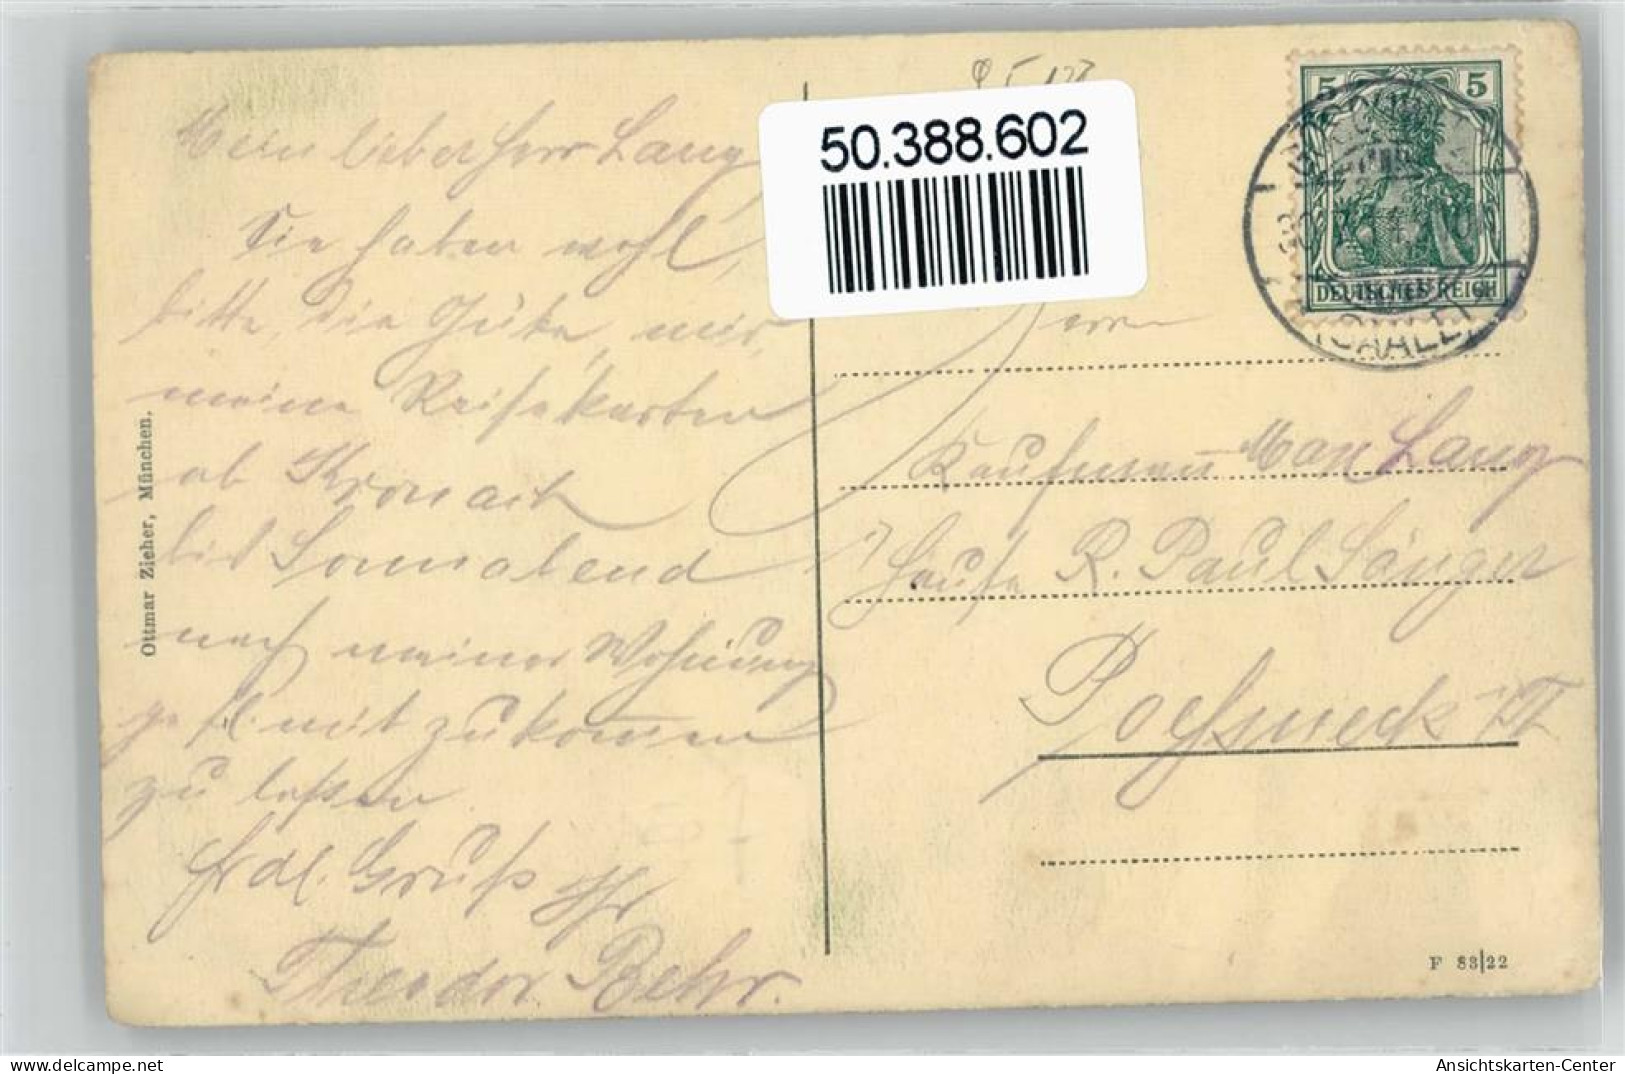 50.388.602
5 5
DEUTSCHES REICH
(SAALE)
Mein lieber Herr Lang
Sie haben wohl,
bitte, die Güte, mir,
meine Reisekarten
ab Kronach
bis Sonnabend
nach meiner Wohnung
gefl. mit zukommen
zu lassen
Frdl. Gruß Ihr
Theodor Behr.
Herrn
Kaufmann Max Lang
Hause R. Paul Sänger
Poessneck i/Th
Ottmar Zieher, München.
F 83|22
www.delcampe.net
Ansichtskarten-Center